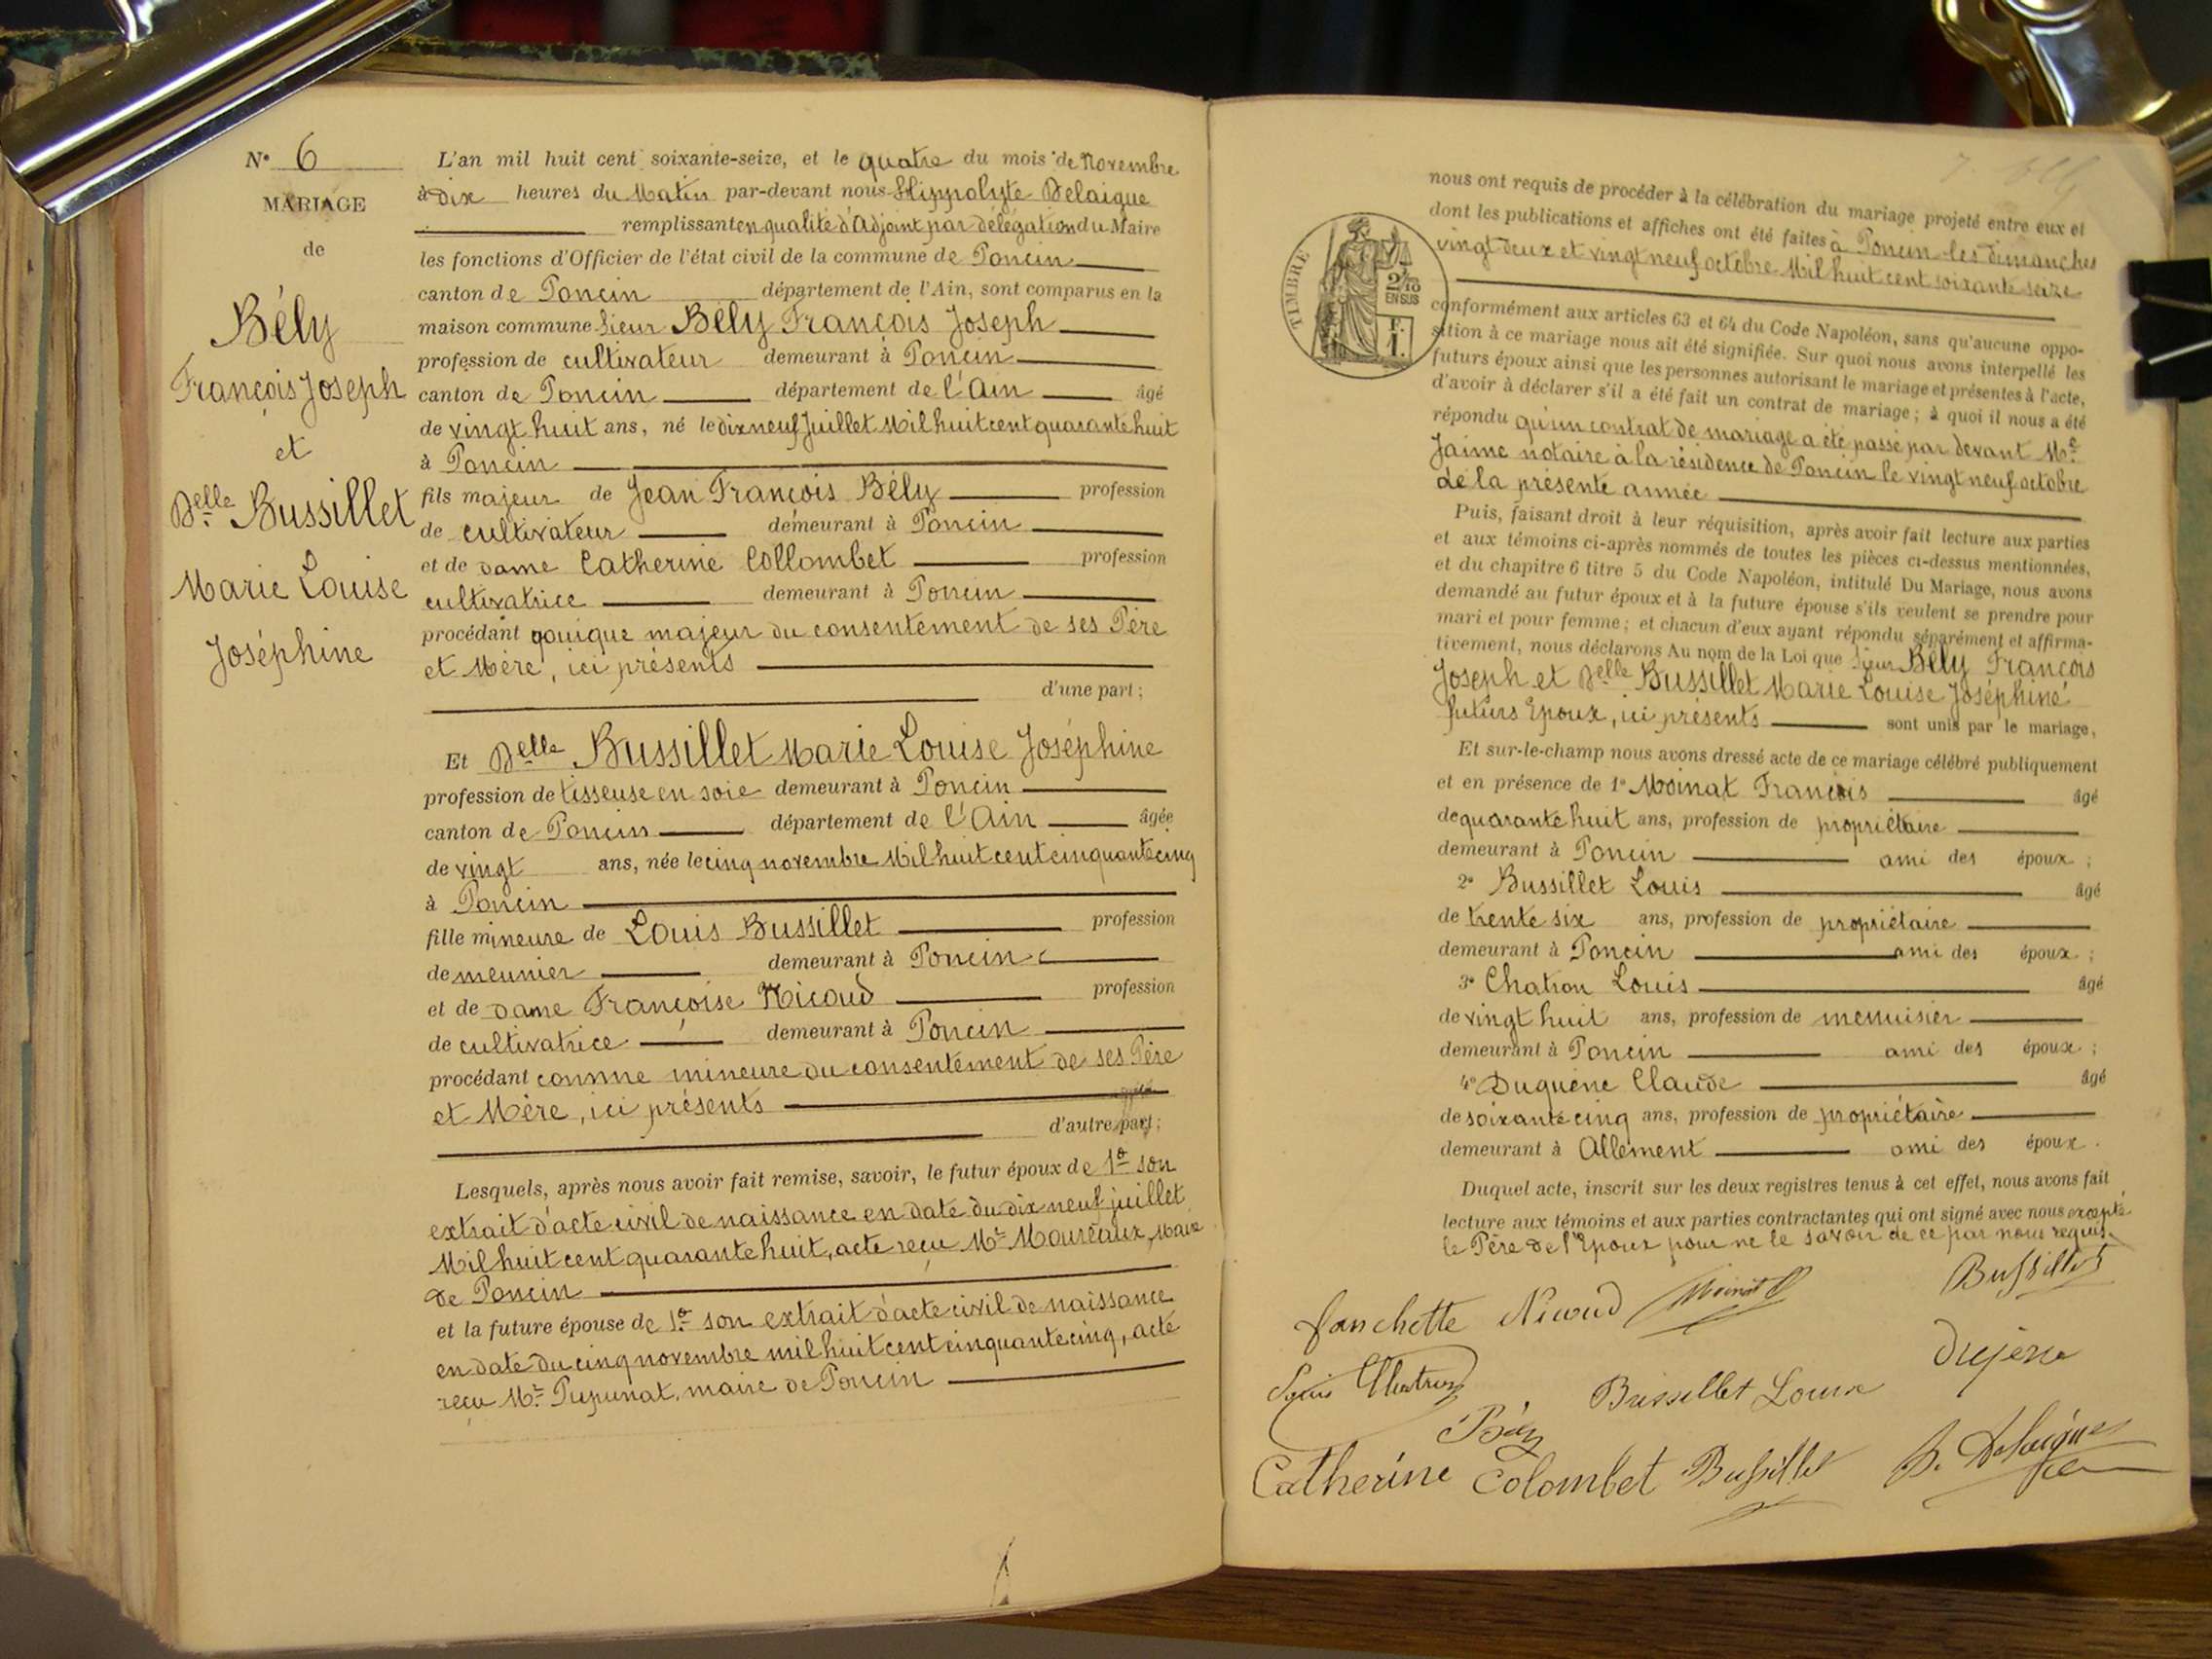 N° 6
MARIAGE
de
Bély
François Joseph
et
Delle Bussillet
Marie Louise
Joséphine
L'an mil huit cent soixante-seize, et le quatre du mois de Novembre
à Dix heures du Matin par-devant nous Hippolyte Delaigue
remplissant en qualité d'Adjoint par délégation du Maire
les fonctions d'Officier de l'état civil de la commune de Poncin
canton de Poncin département de l'Ain, sont comparus en la
maison commune Sieur Bély François Joseph
profession de cultivateur demeurant à Poncin
canton de Poncin département de l'Ain âgé
de vingt huit ans, né le dix neuf Juillet Mil huit cent quarante huit
à Poncin
fils majeur de Jean François Bély profession
de cultivateur demeurant à Poncin
et de Dame Catherine Collombet profession
cultivatrice demeurant à Poncin
procédant quoique majeur du consentement de ses Père
et Mère, ici présents
d'une part;
Et Delle Bussillet Marie Louise Joséphine
profession de tisseuse en soie demeurant à Poncin
canton de Poncin département de l'Ain âgée
de vingt ans, née le cinq novembre Mil huit cent cinquante cinq
à Poncin
fille mineure de Louis Bussillet profession
de meunier demeurant à Poncin
et de Dame Françoise Nicoud profession
de cultivatrice demeurant à Poncin
procédant comme mineure du consentement de ses Père
et Mère, ici présents
d'autre part;
Lesquels, après nous avoir fait remise, savoir, le futur époux de 1° son
extrait d'acte civil de naissance en date du dix neuf juillet
Mil huit cent quarante huit, acte reçu Mr Moureaux, Maire
de Poncin
et la future épouse de 1° son extrait d'acte civil de naissance
en date du cinq novembre mil huit cent cinquante cinq, acte
reçu Mr Pupunat, maire de Poncin
TIMBRE
2/10
EN SUS
F.
1.
nous ont requis de procéder à la célébration du mariage projeté entre eux et
dont les publications et affiches ont été faites à Poncin les dimanches
vingt deux et vingt neuf octobre Mil huit cent soixante seize
conformément aux articles 63 et 64 du Code Napoléon, sans qu'aucune oppo-
sition à ce mariage nous ait été signifiée. Sur quoi nous avons interpellé les
futurs époux ainsi que les personnes autorisant le mariage et présentes à l'acte,
d'avoir à déclarer s'il a été fait un contrat de mariage; à quoi il nous a été
répondu qu'un contrat de mariage a été passé par devant Me
Jaime notaire à la résidence de Poncin le vingt neuf octobre
de la présente année
Puis, faisant droit à leur réquisition, après avoir fait lecture aux parties
et aux témoins ci-après nommés de toutes les pièces ci-dessus mentionnées,
et du chapitre 6 titre 5 du Code Napoléon, intitulé Du Mariage, nous avons
demandé au futur époux et à la future épouse s'ils veulent se prendre pour
mari et pour femme; et chacun d'eux ayant répondu séparément et affirma-
tivement, nous déclarons Au nom de la Loi que Sieur Bély François
Joseph et Delle Bussillet Marie Louise Joséphine
futurs Epoux, ici présents sont unis par le mariage,
Et sur-le-champ nous avons dressé acte de ce mariage célébré publiquement
et en présence de 1° Moinat François âgé
de quarante huit ans, profession de propriétaire
demeurant à Poncin ami des époux;
2° Bussillet Louis âgé
de trente six ans, profession de propriétaire
demeurant à Poncin ami des époux;
3° Chatron Louis âgé
de vingt huit ans, profession de menuisier
demeurant à Poncin ami des époux;
4° Duguène Claude âgé
de soixante cinq ans, profession de propriétaire
demeurant à Allement ami des époux.
Duquel acte, inscrit sur les deux registres tenus à cet effet, nous avons fait
lecture aux témoins et aux parties contractantes qui ont signé avec nous excepté
le Père de l'Epoux pour ne le savoir de ce par nous requis.
fanchette Nicoud Moinat Bussillet
Louis Chatron Bussillet Louise
Bély
Catherine Colombet Bussillet H. Delaigue